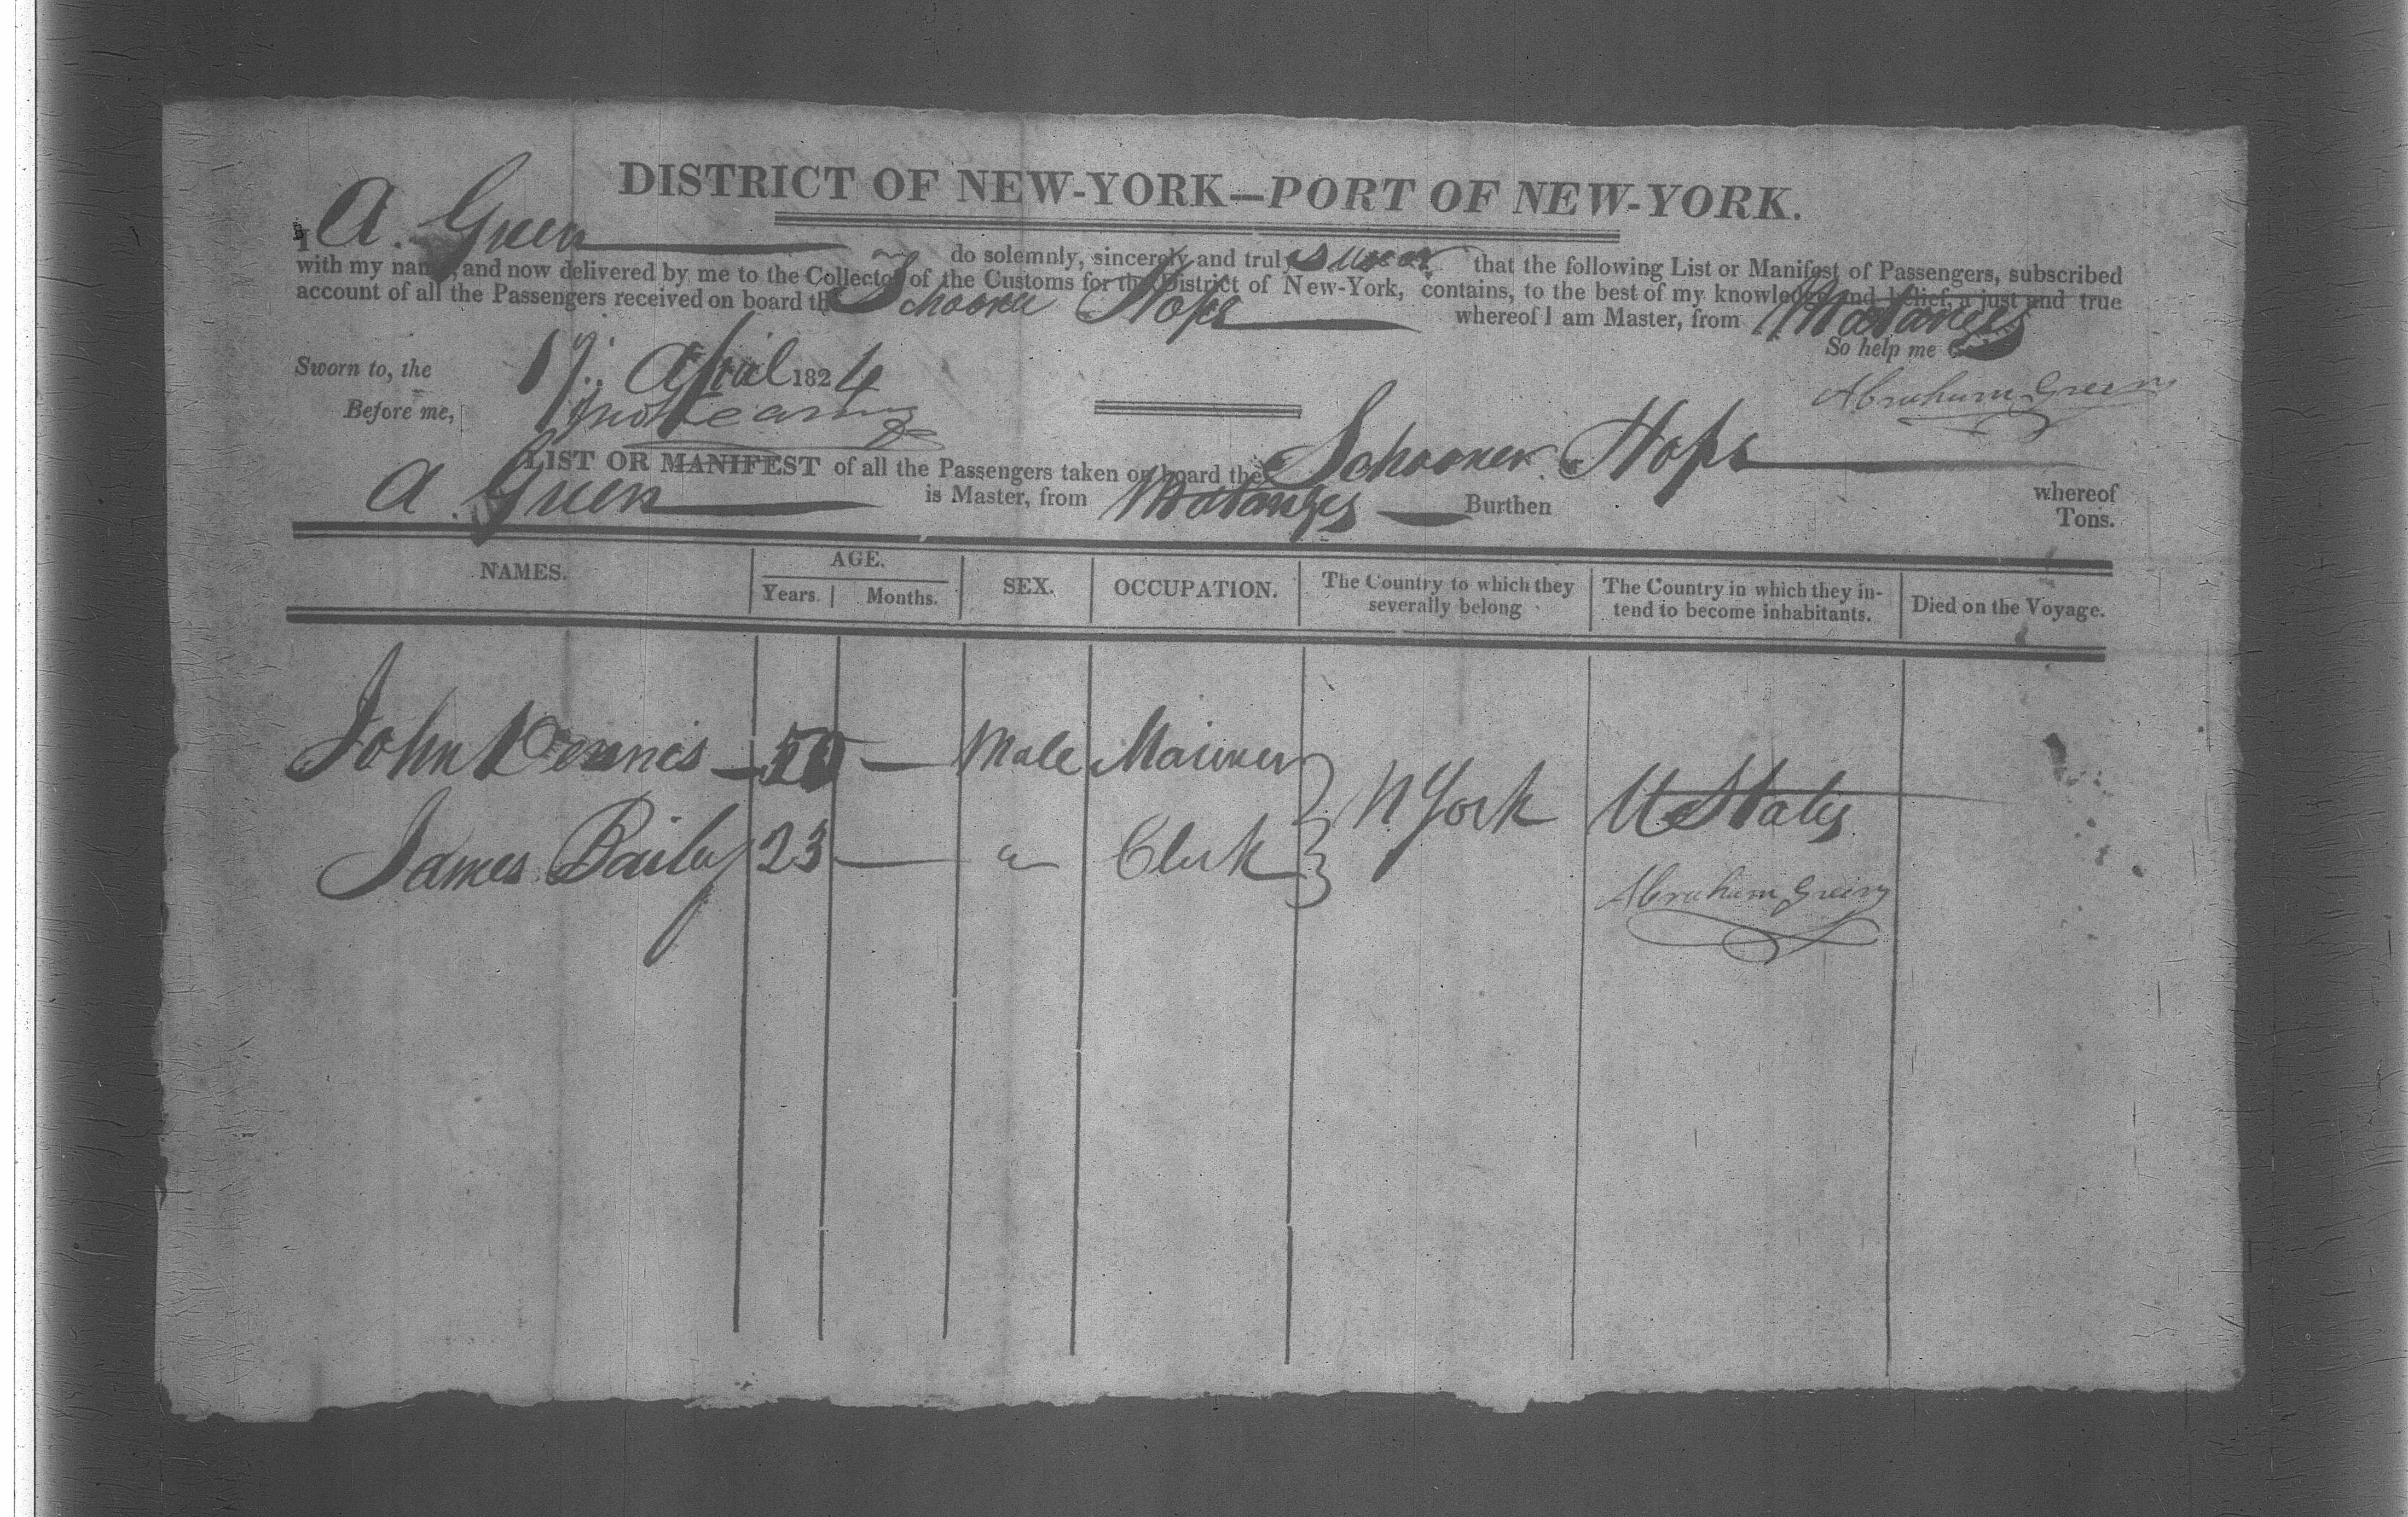 DISTRICT OF NEW-YORK—PORT OF NEW-YORK.
I A. Green do solemnly, sincerely and truly swear that the following List or Manifest of Passengers, subscribed
with my name, and now delivered by me to the Collector of the Customs for the District of New-York, contains, to the best of my knowledge and belief, a just and true
account of all the Passengers received on board the Schooner Hope whereof I am Master, from Matanzes
So help me God.
Sworn to, the April 1824
Abraham Green
Before me,
LIST OR MANIFEST of all the Passengers taken on board the Schooner Hope whereof
A Green is Master, from Matanzes Burthen Tons.
NAMES. AGE. SEX. OCCUPATION. The Country to which they severally belong The Country in which they in-tend to become inhabitants. Died on the Voyage.
Years. Months.
John Dennis Male Mariner
N York U States
James Bailey 23 " Clerk
Abraham Green